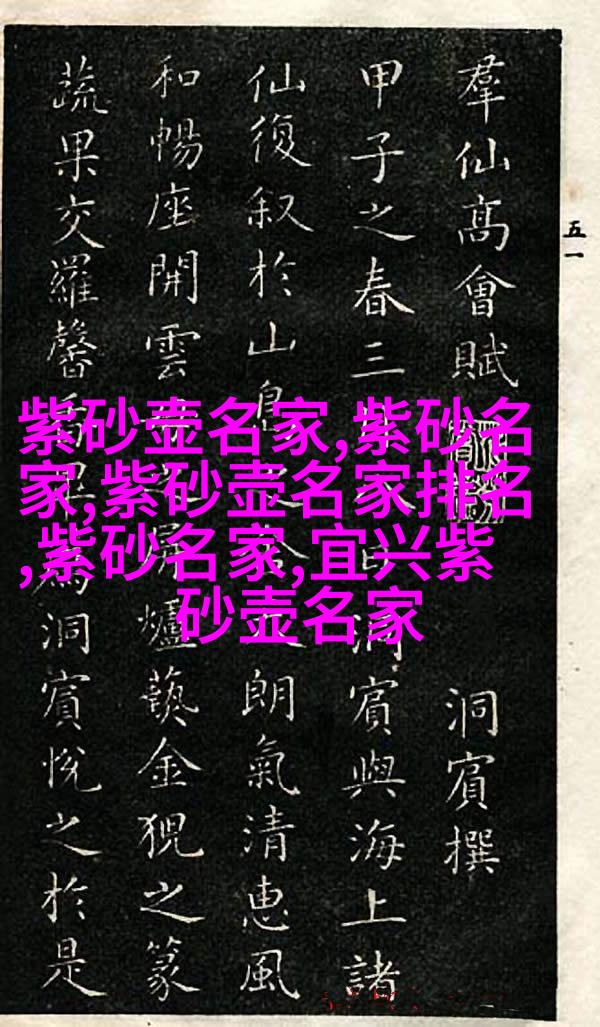 五一
羣仙高會賦
洞賓撰
甲子之春三 日洞賓與海上諸
仙復叙於山島 朗氣清惠風
和暢座開雲 屏爐藝金猊之篆
蔬果交羅馨香 為洞賓悅之於是
紫砂壶名家,紫砂名
家,紫砂壶名家排名
,紫砂名家,宜兴紫
砂壶名家